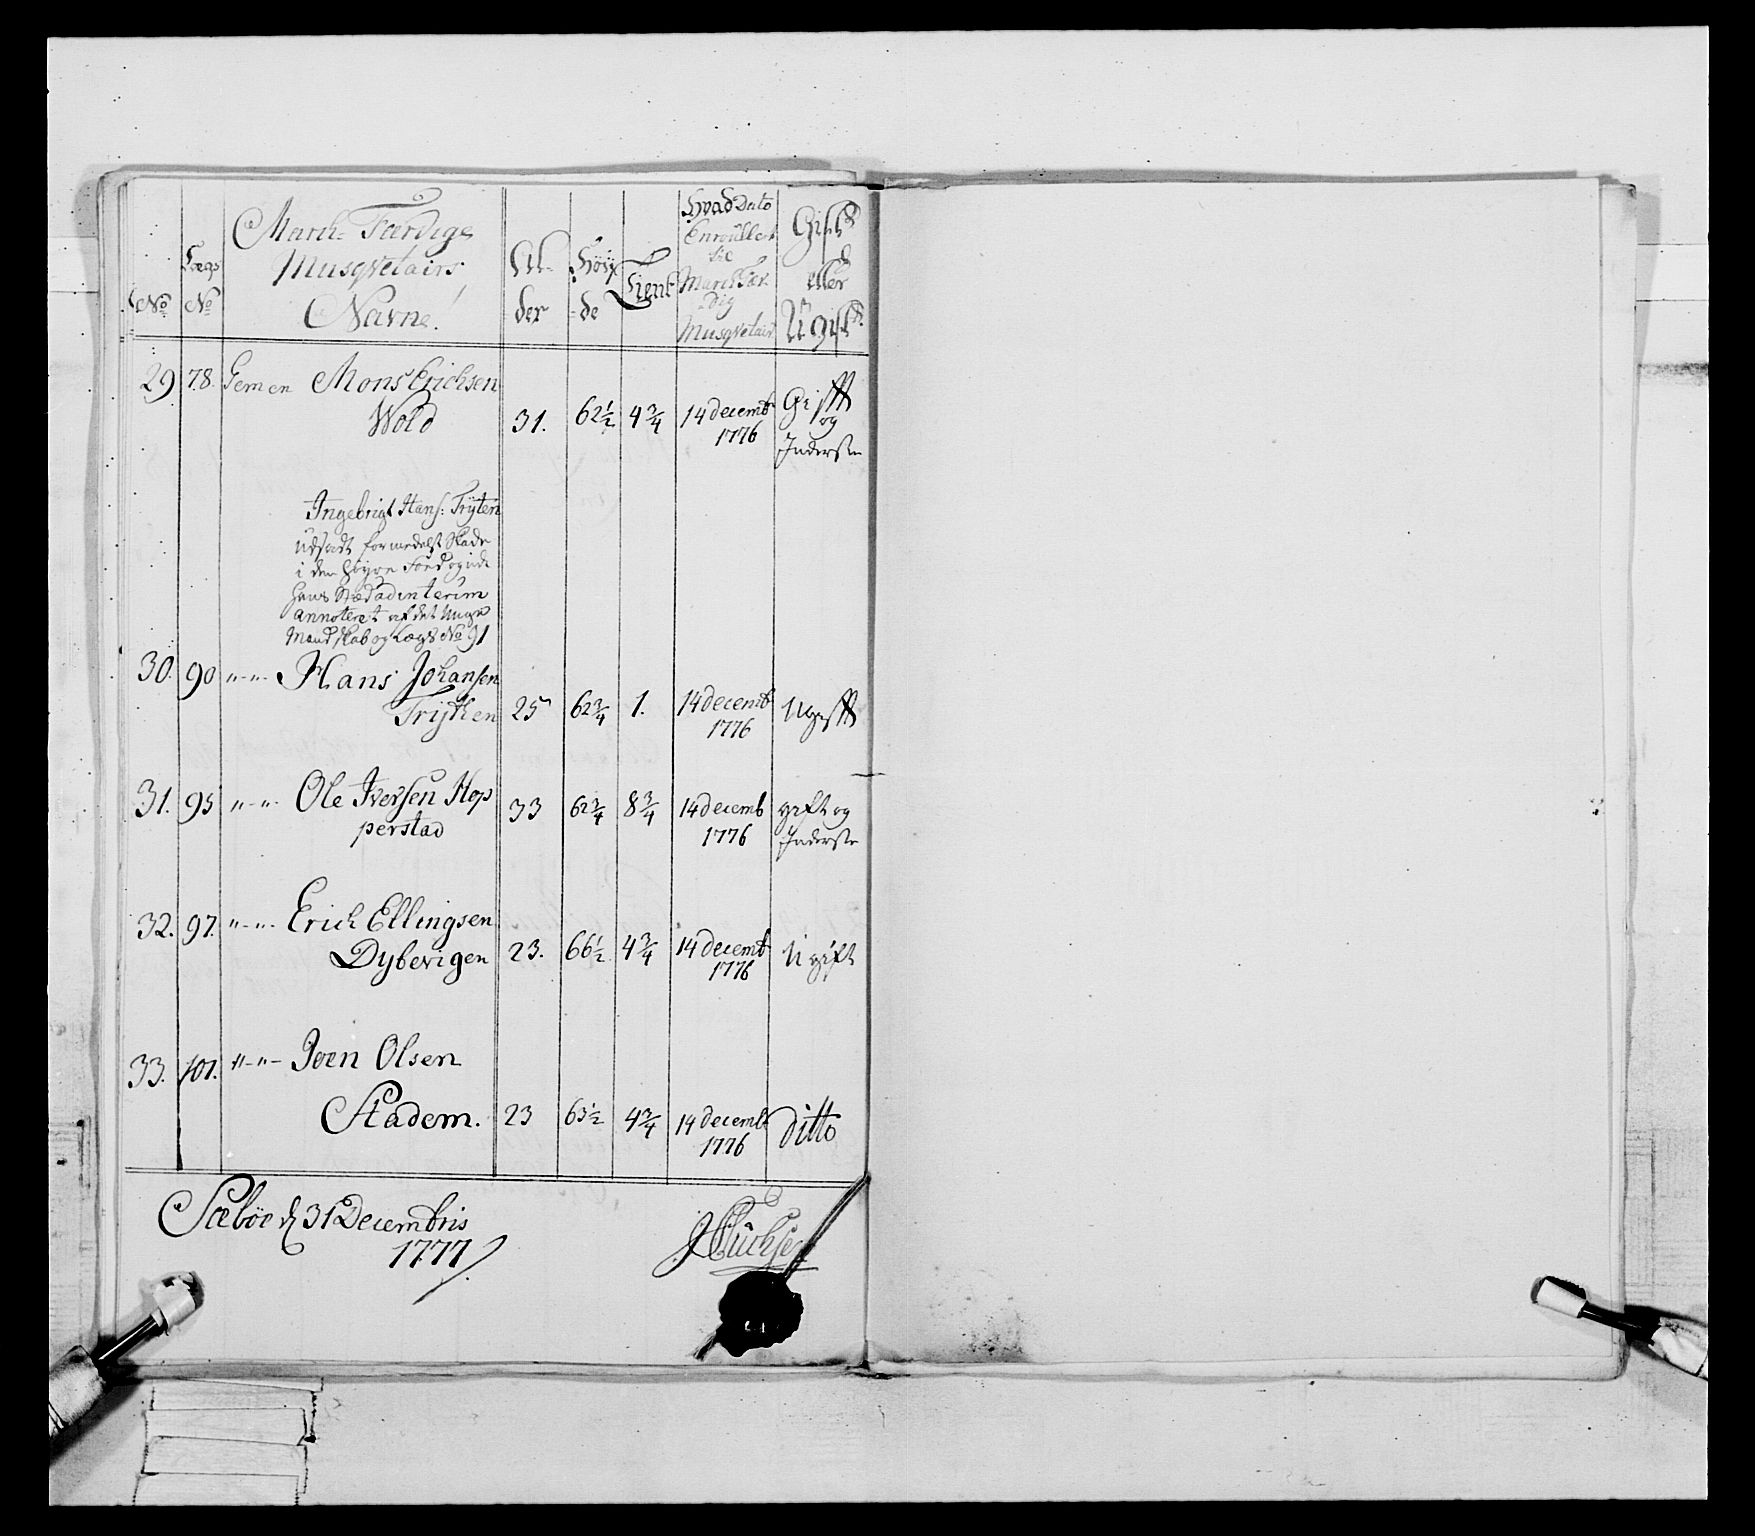 No Lægs No March-Færdige Musqvetairs Navne! Al-der Høy-de Tient Hvad Dato Enroullert til March Fær-dig Musqvetair Gift eller Ugift
29 78. Gemen Mons Erichsen
Wold 31. 62½ 4¾ 14 decemb 1776 Gifft og Inderste
Ingebrigt Hans: Trÿten
Udsadt formedelst Skade
i den høyre Foed og udi
hans Stæd ad interim
annoteret af det Unge
Mandskab og Lægs No 91
30. 90 "-"- Hans Johansen
Trÿtten 25 62¾ 1. 14 decemb 1776 Ugifft
31. 95 "-"- Ole Iversen Hop
perstad 33 62¾ 8¾ 14 decemb 1776 gift og Inderste
32. 97. "-"- Erich Ellingsen
Dybevigen 23. 66½ 4¾ 14 decemb 1776 Ugift
33. 101. "-"- Joen Olsen
Stadem. 23 63½ 4¾ 14 decemb 1776 Ditto
Sæbøe d 31 Decembris
1777